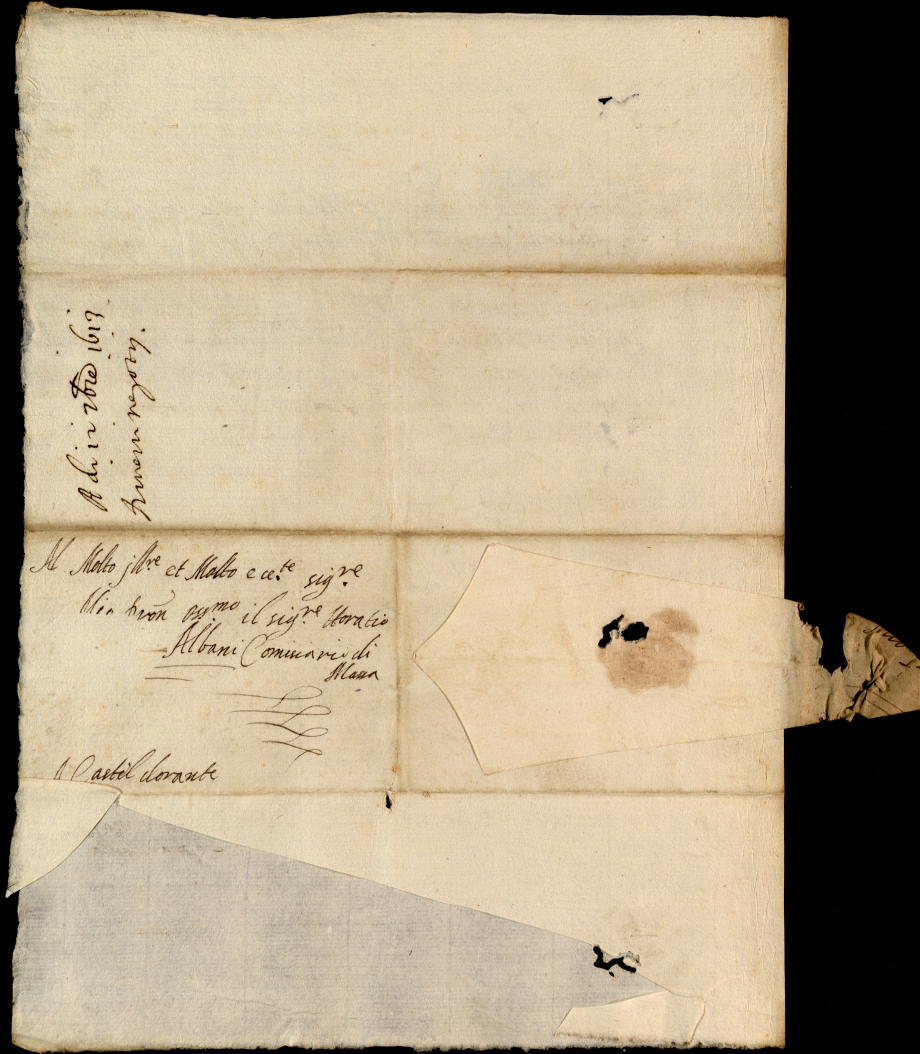 A di 12 xbre 1613
Al Molto Jll.re et Molto ecc.te sig.re
Mio Pron oss.mo il sig.re Horatio
Albani Comisiario di
Massa
A Castel durante